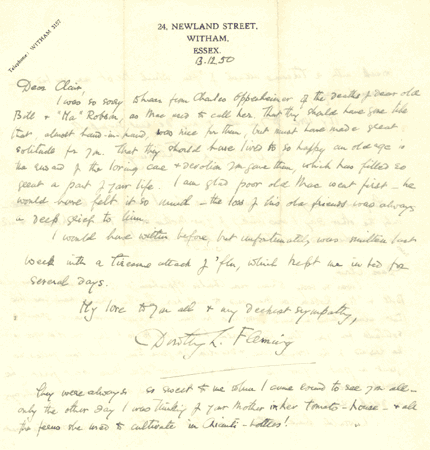 Telephone: WITHAM 3157
24, NEWLAND STREET,
WITHAM,
ESSEX.
13.12.50
Dear Clair,
I was so sorry to hear from Charles Oppenheimer of the deaths of dear old
Bill & "Ma" Robbin, as Mac used to call her. That they should have gone like
that, almost hand-in-hand, was nice for them, but must have made great
solitude for you. That they should have lived to so happy an old age is
the reward of the loving care & devotion you gave them, which has filled so
great a part of your life. I am glad poor old Mac went first – he
would have felt it so much – the loss of his old friends was always
a deep grief to him.
I would have written before, but unfortunately was smitten last
week with a tiresome attack of 'flu, which kept me in bed for
several days.
My love to you all & my deepest sympathy,
Dorothy L. Fleming
They were always so sweet to me when I came round to see you all –
only the other day I was thinking of your Mother in her tomato-house – & all
she used to cultivate in Chianti-bottles!